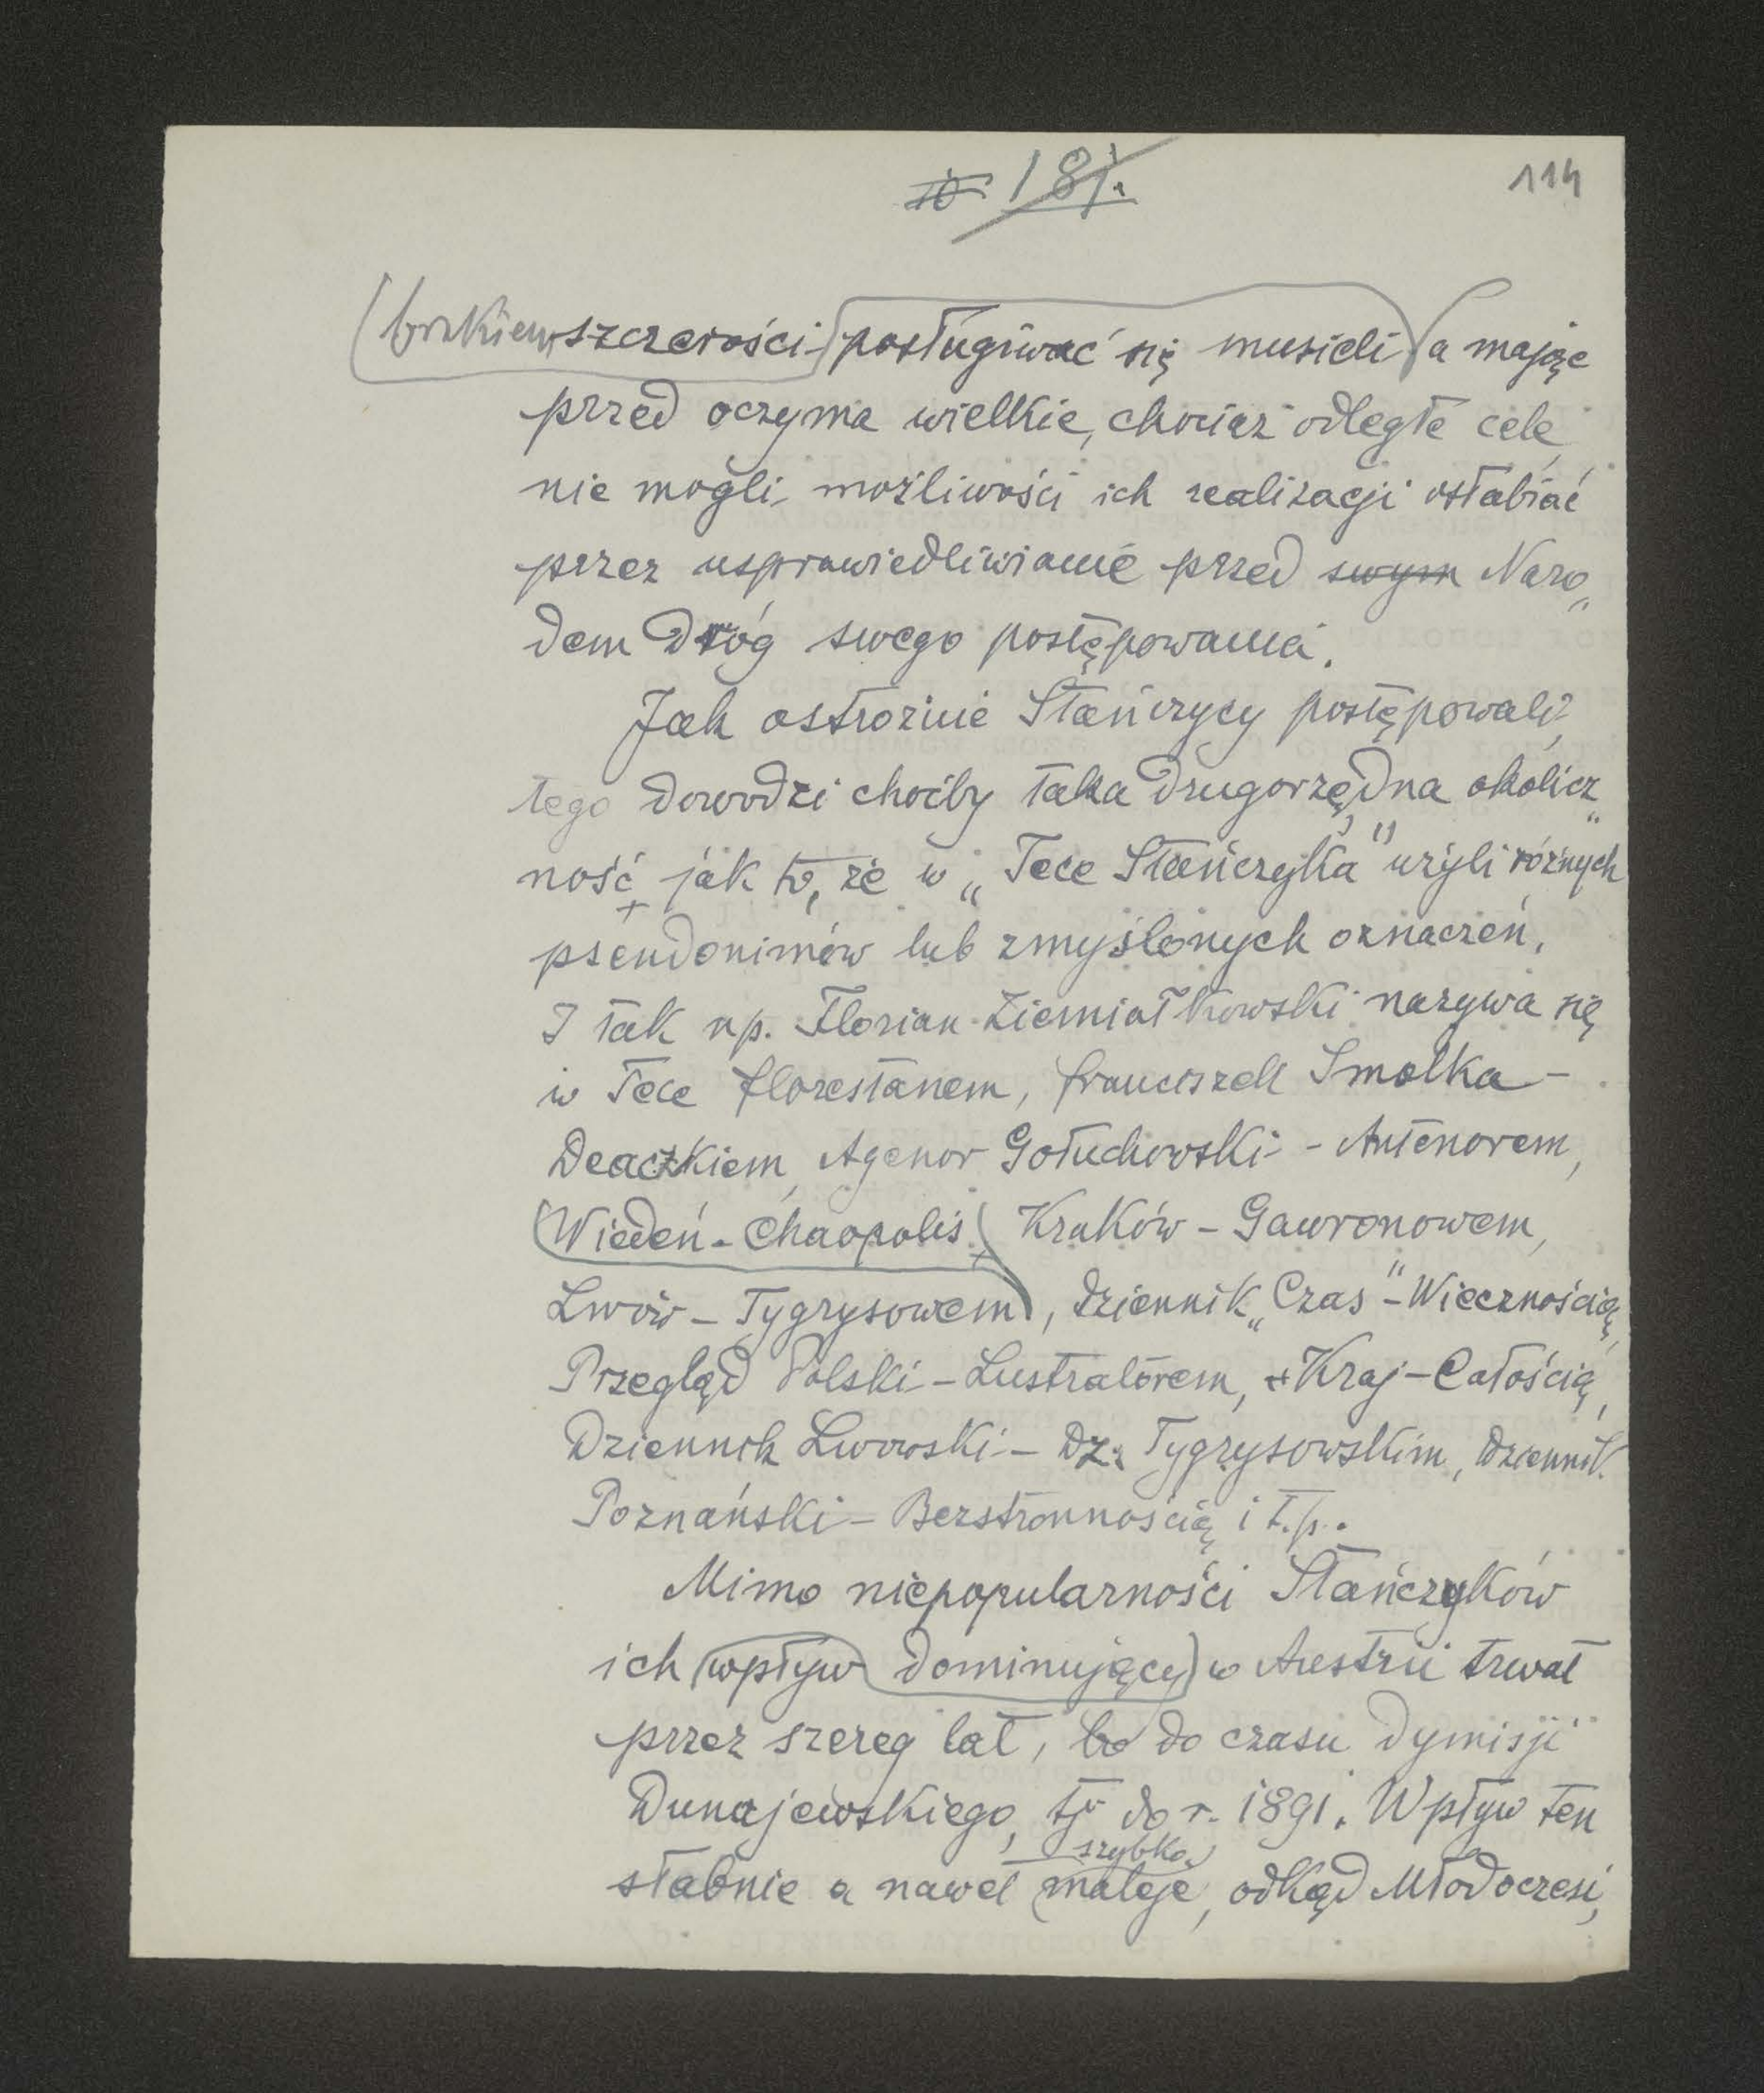 181.
114
brakiem szczerości posługiwać się musieli a mając
przed oczyma wielkie, chociaż odległe cele,
nie mogli możliwości ich realizacji osłabiać
przez usprawiedliwianie przed swym Naro„
dem dróg swego postępowania.
Jak ostrożnie Stańczycy postępowali,
tego dowodzi choćby taka drugorzędna okolicz„
ność, jak to, że w „Tece Stańczyka" użyli różnych
pseudonimów lub zmyślonych oznaczeń.
I tak np. Florian Ziemiałkowski nazywa się
w Tece florestanem, franciszek Smolka -
Deaczkiem, Agenor Gołuchowski - Antenorem,
Wiedeń - Chaopolis, Kraków - Gawronowem,
Lwów - Tygrysowem, dziennik „Czas" - Wiecznością,
Przegląd Polski - Lustratorem, Kraj - Całością,
Dziennik Lwowski - Dz. Tygrysowskim, Dziennik
Poznański - Bezstronnością i t.p.
Mimo niepopularności Stańczyków
ich wpływ dominujący w Austrii trwał
przez szereg lat, bo do czasu dymisji
Dunajewskiego, tj do r. 1891. Wpływ ten
szybko
słabnie a nawet maleje, odkąd Młodoczesi,